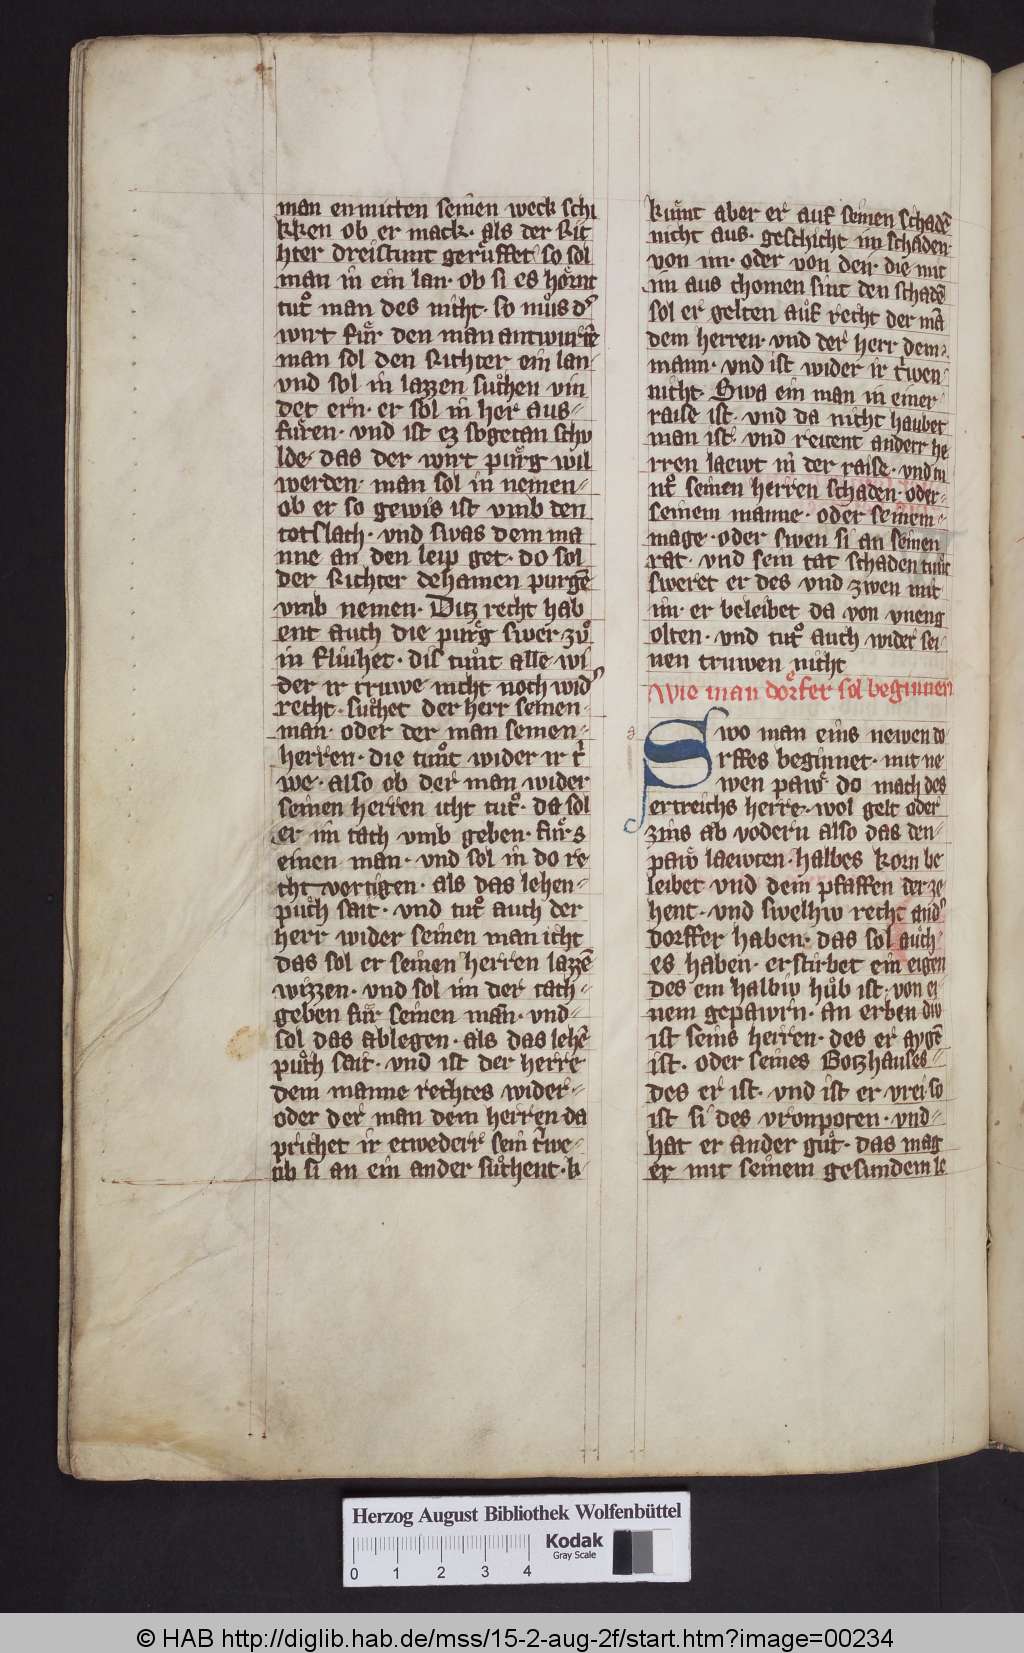 man enmitten seinen weck schi
kken ob er mack · als der Rit
hter dreistunt gerůffet so sol
man in ein lan · ob si es hoͤrnt
tut man des nicht · so můs dˀ
wirt fuͤr den man antwurtē
man sol den Richter ein lan
vnd sol in lazzen sůchen vin
det ern · er sol in her aus
furen · vnd ist ez sogetan schv
lde · das der wirt puͤrg wil
werden · man sol in nemen
ob er so gewis ist vmb den
totslach · vnd swas dem ma
nne an den leip get · do sol
der Richter dehainen purgē
vmb nemen · Ditz recht hab
ent auch die puͤrg swer zů
in fliuhet · dis tůnt alle wi
der ir truwe nicht noch widˀ
recht · sůchet der herr seinen
man · oder der man seinen
herren · die tůnt wider ir tˀ
we · also ob der man wider
seinen herren icht tut · da sol
er im tach vmb geben · fuͤr s
einen man · vnd sol in do re
cht vertigen · als das lehen
půch sait · vnd tut auch der
herr wider seinen man icht
das sol er seinen herren lazzē
wizzen · vnd sol im der tach
geben fuͤr seinen man · vnd
sol das ablegen · als das lehē
půch sait · vnd ist der herre
dem manne rechtes wider
oder der man dem herren da
prichet ir etwederr sein tˀwe
ob si an ein ander sůchent · k
kuͤnt aber er auf seinen schadē
nicht aus · geschicht im schaden
von im · oder von den · die mit
im aus chomen sint den schadē
sol er gelten auf recht der mā
dem herren · vnd der herr dem
mann · vnd ist wider ir tˀwen
nicht Swa ein man in einer
raise ist · vnd da nicht haubet
man ist · vnd reitent anderr he
rren laewt in der raise · vnd tu
nt seinen herren schaden · oder
seinem manne · oder seinem
mage · oder swen si an seinen
rat · vnd sein tat schaden tůnt
sweret er des vnd zwen mit
im · er beleibet da von vneng
olten · vnd tut auch wider sei
nen truwen nicht
Wie man doͤrfer sol beginnen
Swo man eins newen do
rffes beginnet · mit ne
wen paw do mach des
ertreichs herre · wol gelt oder
zins ab vodern also das den
paw laewten · halbes korn be
leibet vnd dem pfaffen der ze
hent · vnd swelhiv recht andˀ
dorffer haben · das sol auch
es haben · erstirbet ein eigen
des ein halbiv hůb ist · von ei
nem gepawrn · an erben div
ist seins herren · des er aygē
ist · oder seines Gotzhauses
des er ist · vnd ist er vrei · so
ist si des vronpoten · vnd
hat er ander gůt · das mag
er mit seinem gesundem le
Herzog August Bibliothek Wolfenbüttel
Kodak
Gray Scale
0 1 2 3 4
© HAB http://diglib.hab.de/mss/15-2-aug-2f/start.htm?image=00234